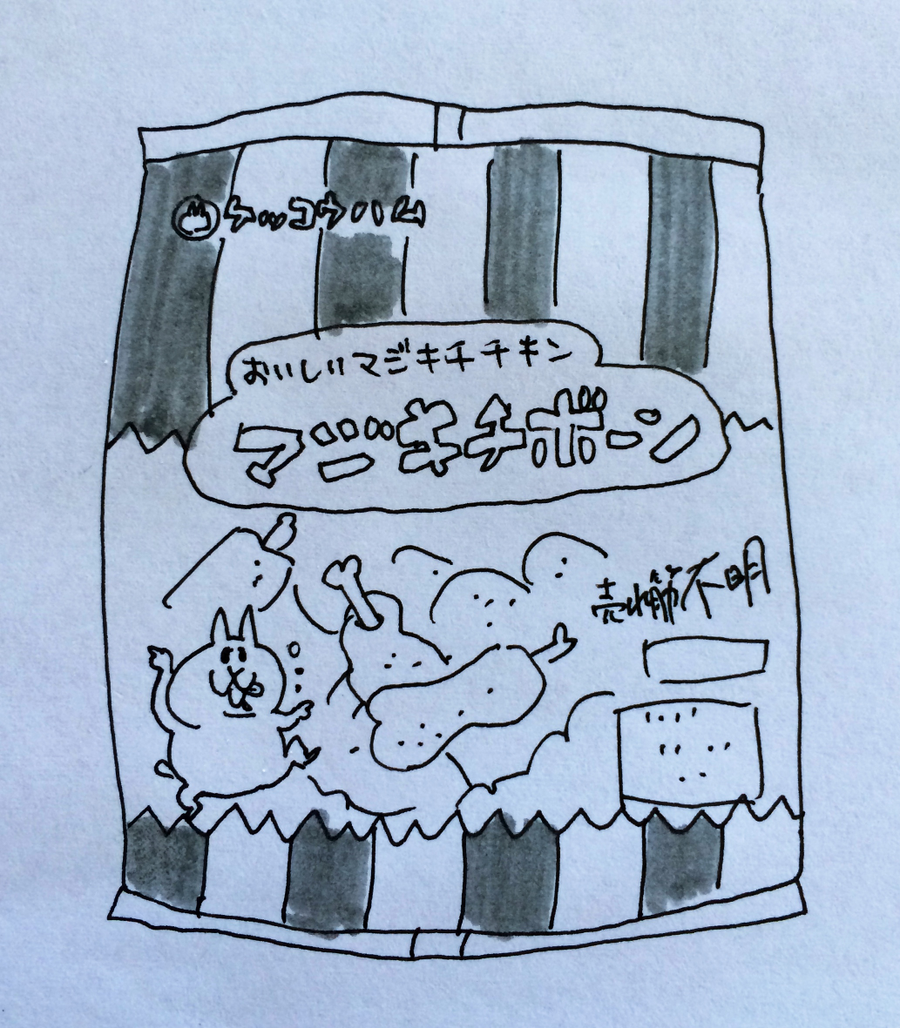 ケッコウハム
おいしいマジキチチキン
マジキチボーン
売れ筋不明